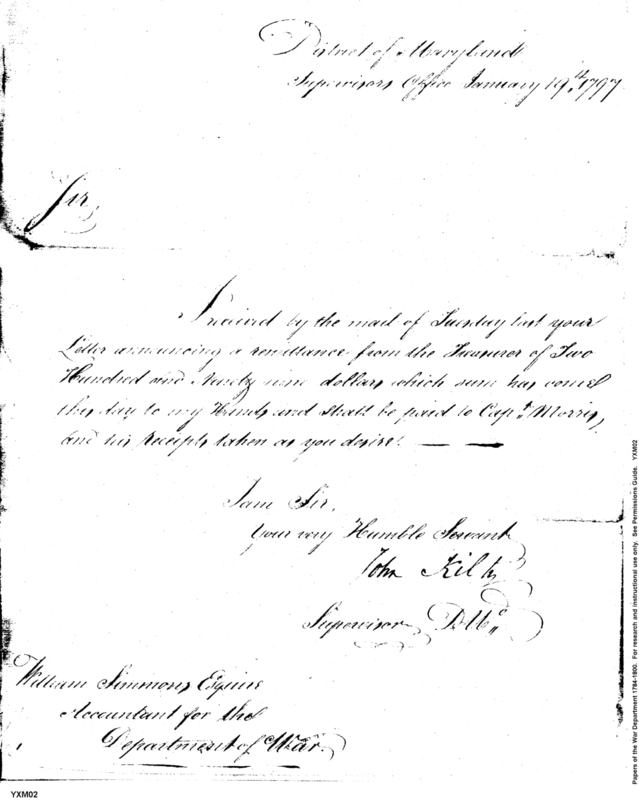 District of Maryland
Supervisors Office January 19th, 1797
Sir,
I received by the mail of Tuesday last your
Letter announcing a remittance from the Treasurer of Two
Hundred and Ninety nine dollars which sum has come
this day to my Hands and shall be paid to Capt. Morris,
and his receipts taken as you desire.
I am Sir,
Your very Humble Servant
John Kilty
Supervisor D. Md
William Simmons Esquire
Accountant for the
Department of War
YXM02
Papers of the War Department 1784-1800. For research and instructional use only. See Permissions Guide. YXM02